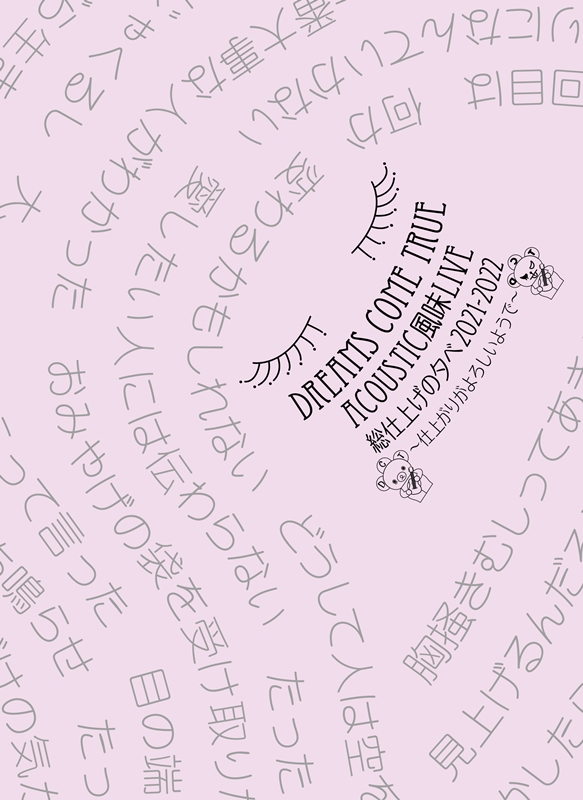 DREAMS COME TRUE
ACOUSTIC風味LIVE
総仕上げの夕べ 2021-2022
～仕上がりがよろしいようで～
D C T
D C T
回目は
何か
変わるかもしれない
りになんていかない
愛したい人には伝わらない
番大事な人がわかった
おみやげの袋を受け取り
じゃくるし
って言った
鳴らせ
目の端
だった
どうして人は空
胸掻きむしってあ
見上げるんだろ
かした
だっ
けの気